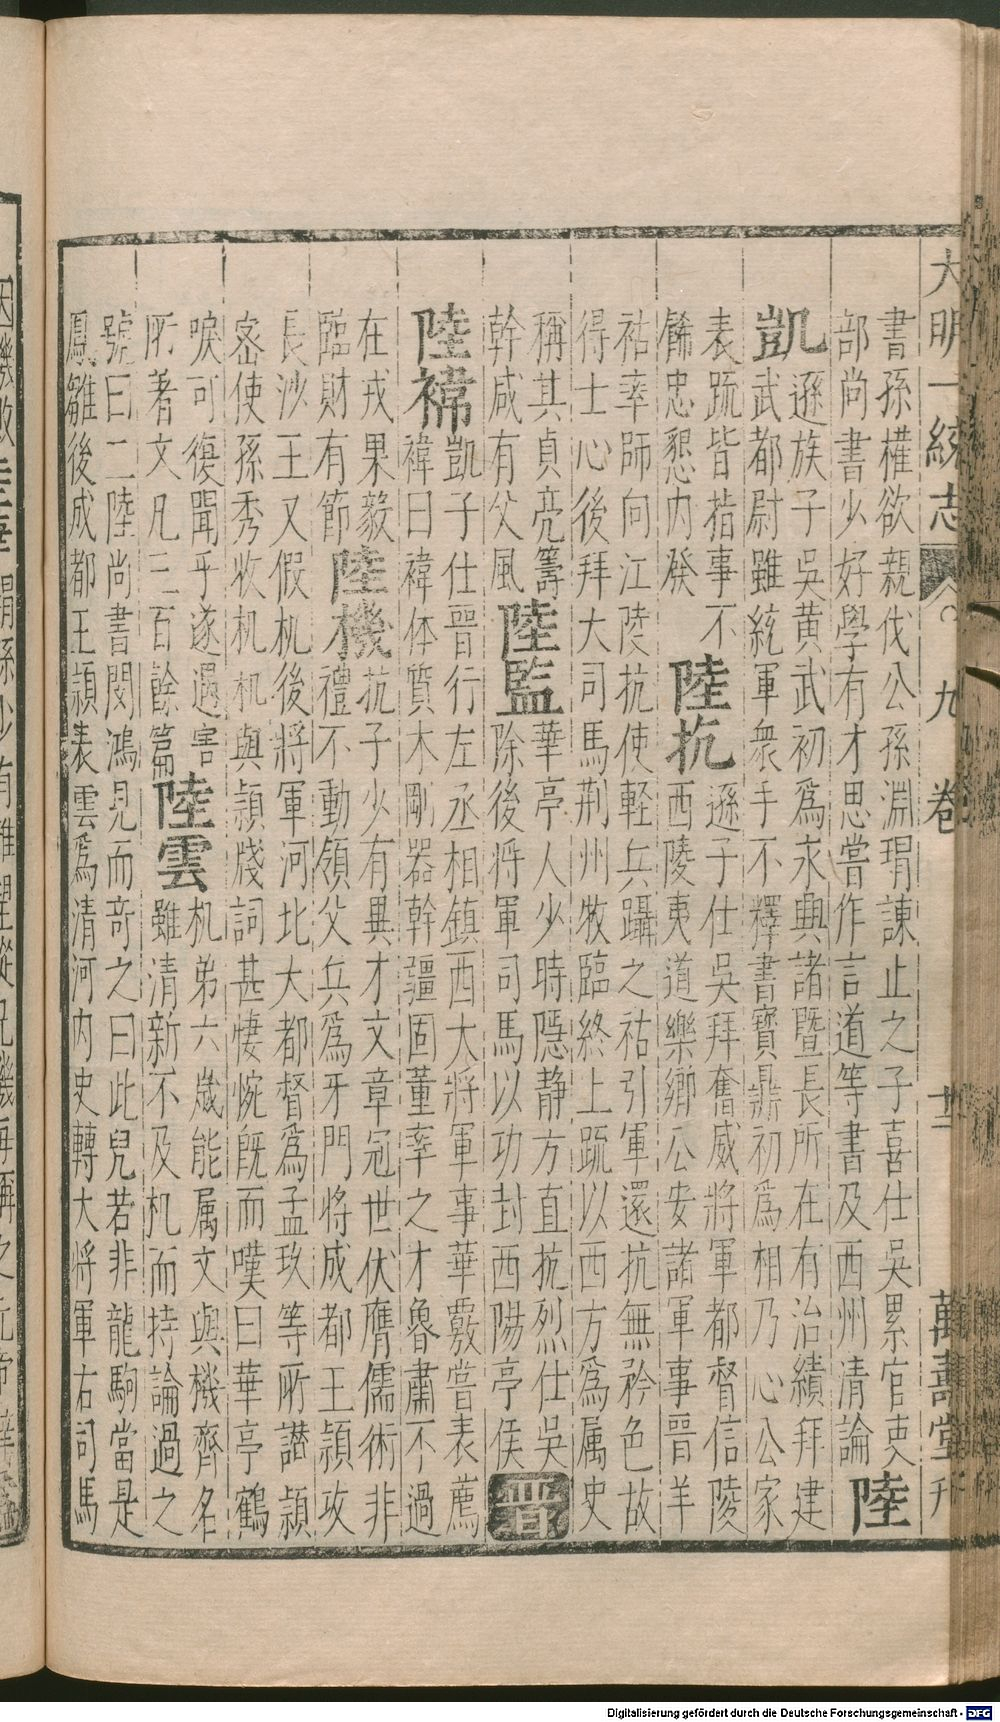 大明一統志 九卷 萬壽堂刊
書孫權欲親伐公孫淵瑁諫止之子喜仕吳累官吏
部尚書少好學有才思嘗作言道等書及西州清論
陸
凱
遜族子吳黃武初為永興諸暨長所在有治績拜建
武都尉雖統軍衆手不釋書寶鼎初為相乃心公家
表疏皆指事不
餙忠懇内發
陸抗
遜子仕吳拜奮威將軍都督信陵
西陵夷道樂鄉公安諸軍事晉羊
祜率師向江陵抗使軽兵躡之祜引軍還抗無矜色故
得士心後拜大司馬荆州牧臨終上疏以西方為属史
稱其貞亮籌
幹咸有父風
陸監
華亭人少時隠静方直抗烈仕吳
除後将軍司馬以功封西陽亭侯
晉
陸褘
凱子仕晉行左丞相鎮西大將軍事華覈嘗表薦
褘曰褘体質木剛器幹疆固董率之才魯肅不過
在戎果毅
臨財有節
陸機
抗子少有異才文章冠世伏膺儒術非
禮不動領父兵為牙門将成都王頴攻
長沙王乂假机後將軍河北大都督為孟玖等所譖頴
宻使孫秀收机机與頴牋詞甚悽惋既而嘆曰華亭鶴
唳可復聞乎遂遇害
所著文凡三百餘篇
陸雲
机弟六歲能属文與機齊名
雖清新不及机而持論過之
號曰二陸尚書閔鴻見而竒之曰此兒若非龍駒當是
鳳雛後成都王頴表雲為清河内史轉大将軍右司馬
Digitalisierung gefördert durch die Deutsche Forschungsgemeinschaft - DFG